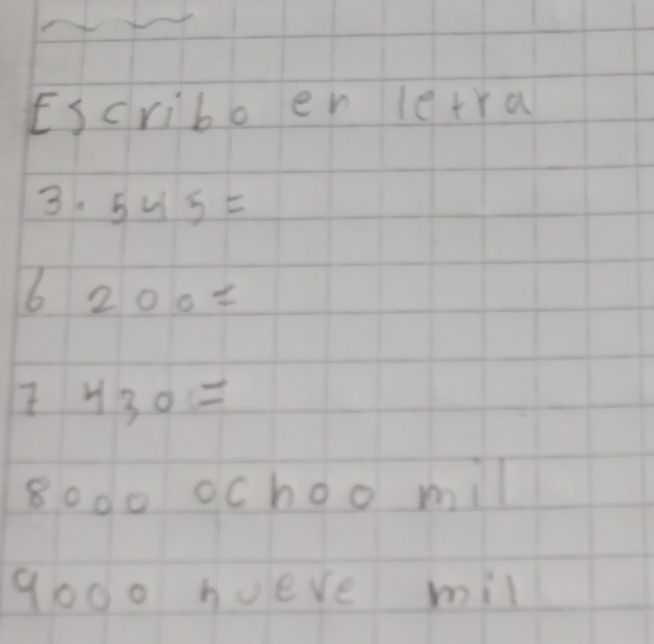 Escribo en letra
3.545=
6 200=
7 430=
8000 ochoo mil
9000 nueve mil